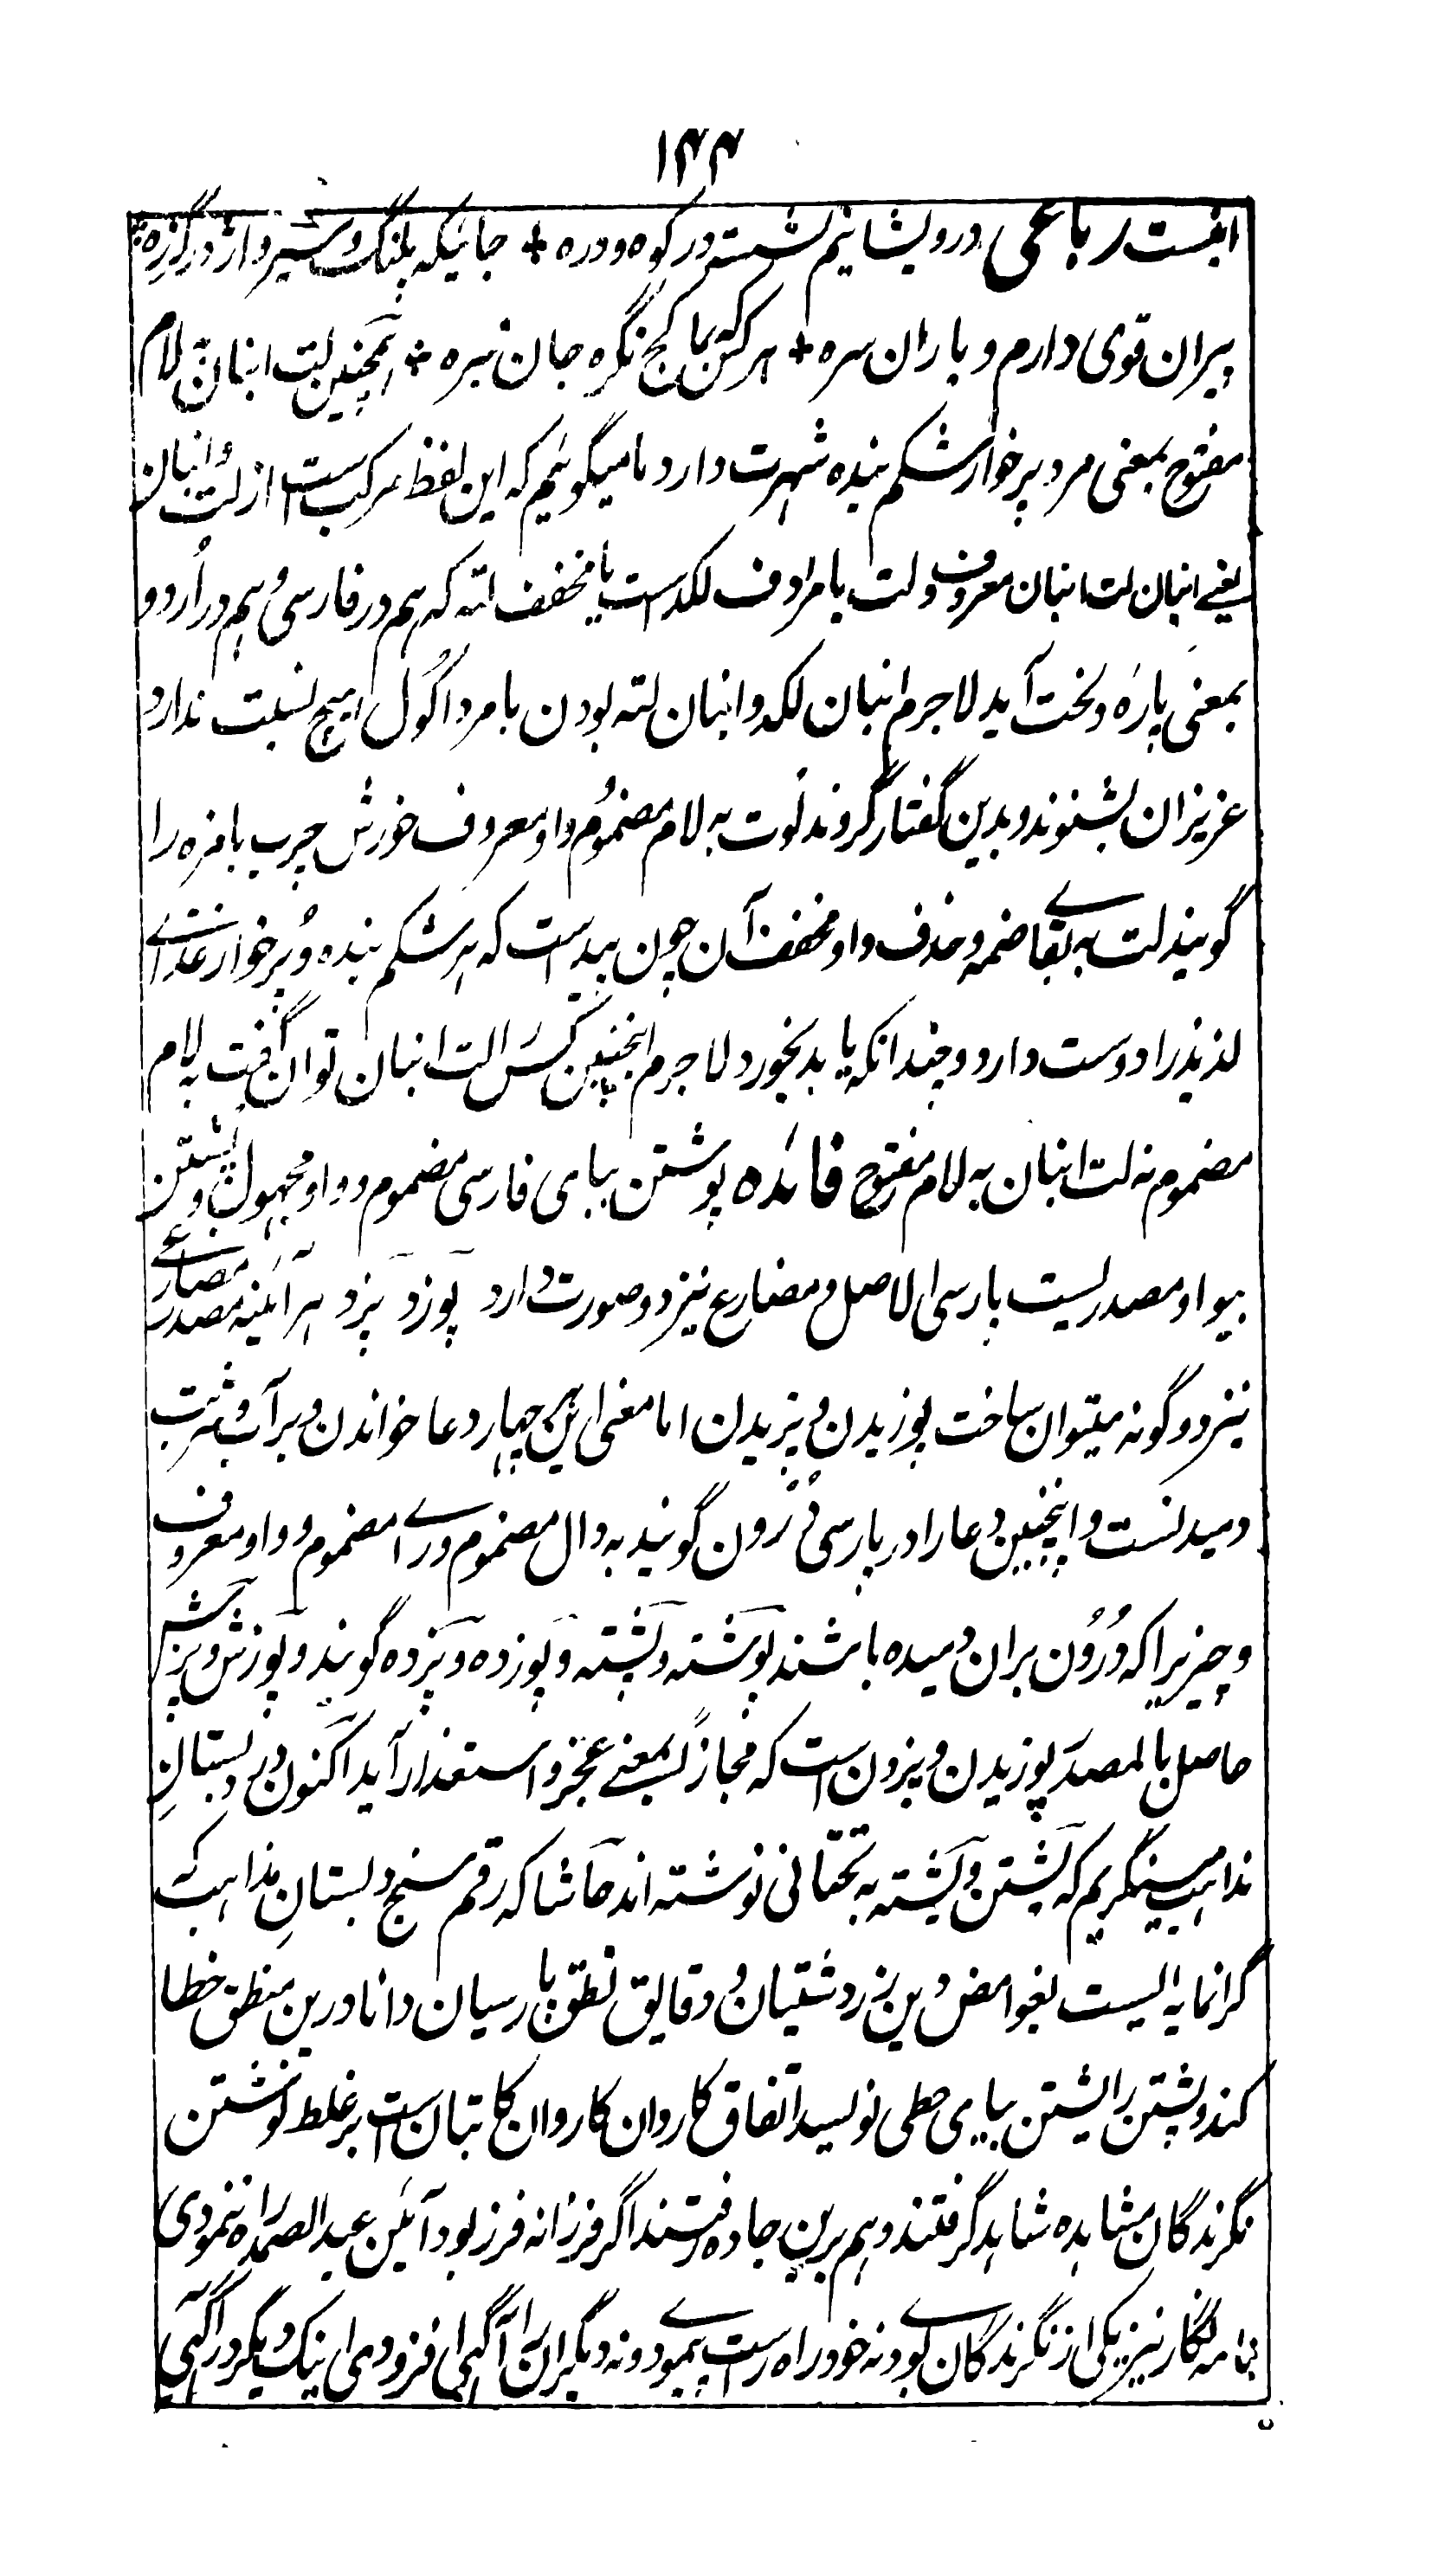 ۱۴۴
اینست رباعی درویشانیم نشسته در کوه و دره + جائیکه پلنگ و شیر و اژدر گزره +
پیران قوی دارم و یاران سره + هر کس که بما کج نگره جان نبره + همچنین لت انبان بہ لام
مفتوح بمعنی مرد پرخوار شکم بنده شهرت دارد ما میگوئیم که این لفظ مرکب ست از لت و انبان
یعنے انبان لت انبان معروف و لت یا مرادف لکد ست یا مخفف لته که هم در فارسی و هم در اُردو
بمعنی پارهٔ و لخت آید لاجرم انبان لکد و انبان لته بودن با مرد اکول هیچ نسبت ندارد
عزیزان بشنوند و بدین گفتار گروند لُوت به لام مضمُوم و واو معروف خورش چرب با مزه را
گویند لت به بقاے ضمه و حذف واو مخفف آن چون پیداست که هر شکم بنده و پُرخوار غذاے
لذیذ را دوست دارد و چندانکه یابد بخورد لاجرم اینچنین کس را لت انبان توان گفت بہ لام
مضموم نه لت انبان به لام مفتوح فائده پوشتن ببای فارسی مضموم و واو مجهول و پشتن
بیواو مصدریست پارسی الاصل و مضارع نیز دو صورت دارد پوزد پزد هر آئینه مصدر مضارعے
نیز دو گونه میتوان ساخت پوزیدن و پزیدن اما معنی این هر چهار دعا خواندن و بر آب و شربت
دمیدنست و اینچنین دعا را در پارسی دُرُون گویند به دال مضموم و راے مضموم و واو معروف
و چیزیرا که دُرُون بران دمیده باشند پوشته و پشته و پوزده و پزده گویند و پوزش و پزش
حاصل بالمصدر پوزیدن و پزدن است که مجازاً بمعنے عجز و استعذار آید اکنون در دبستانِ
مذاهب مینگریم که یشتن و یشته به تحتانی نوشته اند حاشا که رقم سنج دبستانِ مذاهب که
گرانمایه ایست بغوامض دین زردشتیان و دقایق نطق پارسیان دانا درین منطق خطا
کند و پشتن را یشتن بیای حطی نویسد اتفاق کاروان کاروان کاتبان ست بر غلط نوشتن
نگرندگان مشاهده شاهد گرفتند و هم برین جاده رفتند اگر فرزانه فرز بود آئین عبدالصمد راه ننمودی
نامه نگار نیز یکی از نگرندگان بودے نه خود راه راست پیمودے و نه دیگران را آگهی افزودی اینک دیگر در آگهی